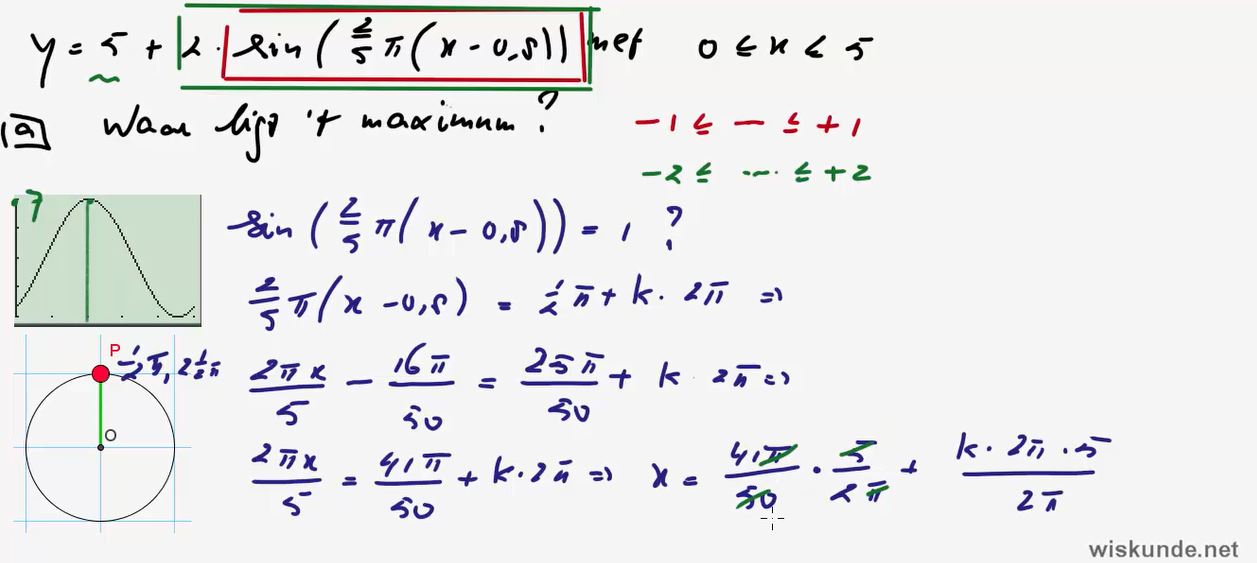 y = 5 + 2 · sin ( 2/5 π ( x - 0,8 ) ) met 0 ≤ x ≤ 5
a Waar ligt 't maximum ?
-1 ≤ — ≤ +1
-2 ≤ ... ≤ +2
7
sin ( 2/5 π ( x - 0,8 ) ) = 1 ?
2/5 π ( x - 0,8 ) = 1/2 π + k · 2π ⇒
P 1/2 π, 2 1/2 π
2πx/5 - 16π/50 = 25π/50 + k · 2π ⇒
O
2πx/5 = 41π/50 + k · 2π ⇒ x = 41π/50 · 5/2π + k · 2π · 5/2π
wiskunde.net